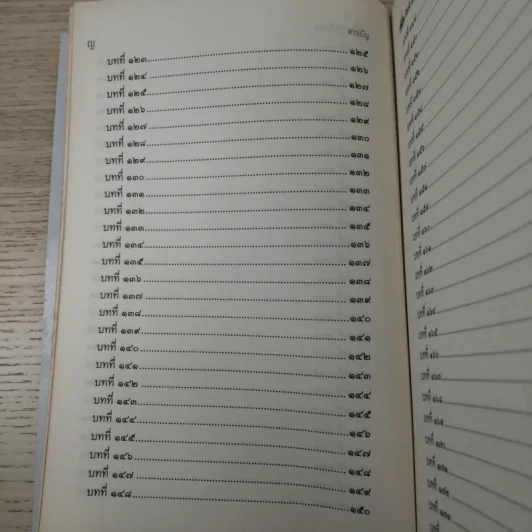 ญ สารบัญ
บทที่ ๑๒๓ ........ ๑๒๕
บทที่ ๑๒๔ ........ ๑๒๖
บทที่ ๑๒๕ ........ ๑๒๗
บทที่ ๑๒๖ ........ ๑๒๘
บทที่ ๑๒๗ ........ ๑๒๙
บทที่ ๑๒๘ ........ ๑๓๐
บทที่ ๑๒๙ ........ ๑๓๑
บทที่ ๑๓๐ ........ ๑๓๒
บทที่ ๑๓๑ ........ ๑๓๓
บทที่ ๑๓๒ ........ ๑๓๔
บทที่ ๑๓๓ ........ ๑๓๕
บทที่ ๑๓๔ ........ ๑๓๖
บทที่ ๑๓๕ ........ ๑๓๗
บทที่ ๑๓๖ ........ ๑๓๘
บทที่ ๑๓๗ ........ ๑๓๙
บทที่ ๑๓๘ ........ ๑๔๐
บทที่ ๑๓๙ ........ ๑๔๑
บทที่ ๑๔๐ ........ ๑๔๒
บทที่ ๑๔๑ ........ ๑๔๓
บทที่ ๑๔๒ ........ ๑๔๔
บทที่ ๑๔๓ ........ ๑๔๕
บทที่ ๑๔๔ ........ ๑๔๖
บทที่ ๑๔๕ ........ ๑๔๗
บทที่ ๑๔๖ ........ ๑๔๘
บทที่ ๑๔๗ ........ ๑๔๙
บทที่ ๑๔๘ ........ ๑๕๐
บทที่ ๑๖๐
บทที่ ๑๖๑
บทที่ ๑๖๒
บทที่ ๑๖๓
บทที่ ๑๖๔
บทที่ ๑๖๕
บทที่ ๑๖๖
บทที่ ๑๖๗
บทที่ ๑๖๘
บทที่ ๑๖๙
บทที่ ๑๗๐
บทที่ ๑๗๑
บทที่ ๑๗๒
บทที่ ๑๗๓